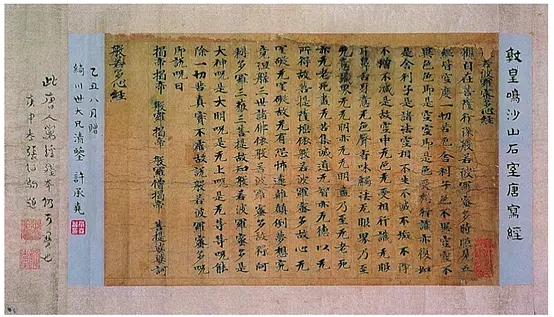 敦皇鳴沙山石室唐寫經
般若波羅蜜多心經
觀自在菩薩行深般若波羅蜜多時照見五
蘊皆空度一切苦厄舍利子色不異空空不
異色色即是空空即是色受想行識亦復如
是舍利子是諸法空相不生不滅不垢不淨
不增不減是故空中无色无受想行識无眼
耳鼻舌身意无色聲香味觸法无眼界乃至
无意識界无无明亦无无明盡乃至无老死
亦无老死盡无苦集滅道无智亦无得以无
所得故菩提薩埵依般若波羅蜜多故心无
罣礙无罣礙故无有恐怖遠離顛倒夢想究
竟涅槃三世諸佛依般若波羅蜜多故得阿
耨多羅三藐三菩提故知般若波羅蜜多是
大神呪是大明呪是无上呪是无等等呪能
除一切苦真實不虛故說般若波羅蜜多呪
即說呪曰
揭帝揭帝 般羅揭帝 般羅僧揭帝 菩提莎婆訶
般若多心經
乙丑八月贈
綺川世大兄清鑒 許承堯
此唐人寫經 仍可寶也
庚申春張伯駒題